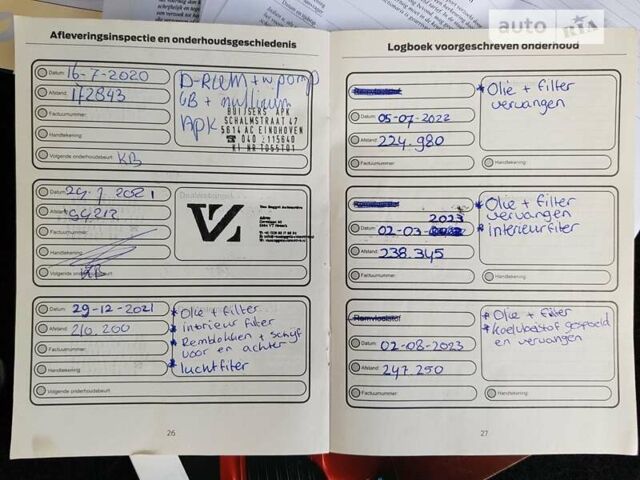 auto RIA
Afleveringsinspectie en onderhoudsgeschiedenis
Datum: 16-7-2020
Afstand: 172843
Factuurnummer:
Handtekening:
Volgende onderhoudsbeurt: KB
D-RIEM + w pomp
GB +
APK
BUIJSERS APK
SCHALMSTRAAT 47
5614 AC EINDHOVEN
☎ 040 2115640
Datum: 29-7-2021
Afstand:
Factuurnummer:
Handtekening:
Volgende onderhoudsbeurt: KB
VZ
Datum: 29-12-2021
Afstand: 210.200
Factuurnummer:
Handtekening:
Volgende onderhoudsbeurt:
* Olie + filter
* interieur filter
* Remblokken + schijf
voor en achter
* luchtfilter
26
Logboek voorgeschreven onderhoud
Remvloeistof
Datum: 05-07-2022
Afstand: 224.980
Factuurnummer:
* Olie + filter
vervangen
Handtekening:
Remvloeistof
2023
Datum: 02-03-
Afstand: 238.345
Factuurnummer:
* Olie + filter
vervangen
* interieurfilter
Handtekening:
Remvloeistof
Datum: 02-08-2023
Afstand: 247.250
Factuurnummer:
* Olie + filter
* Koelvloeistof gespoeld
en vervangen
Handtekening:
27